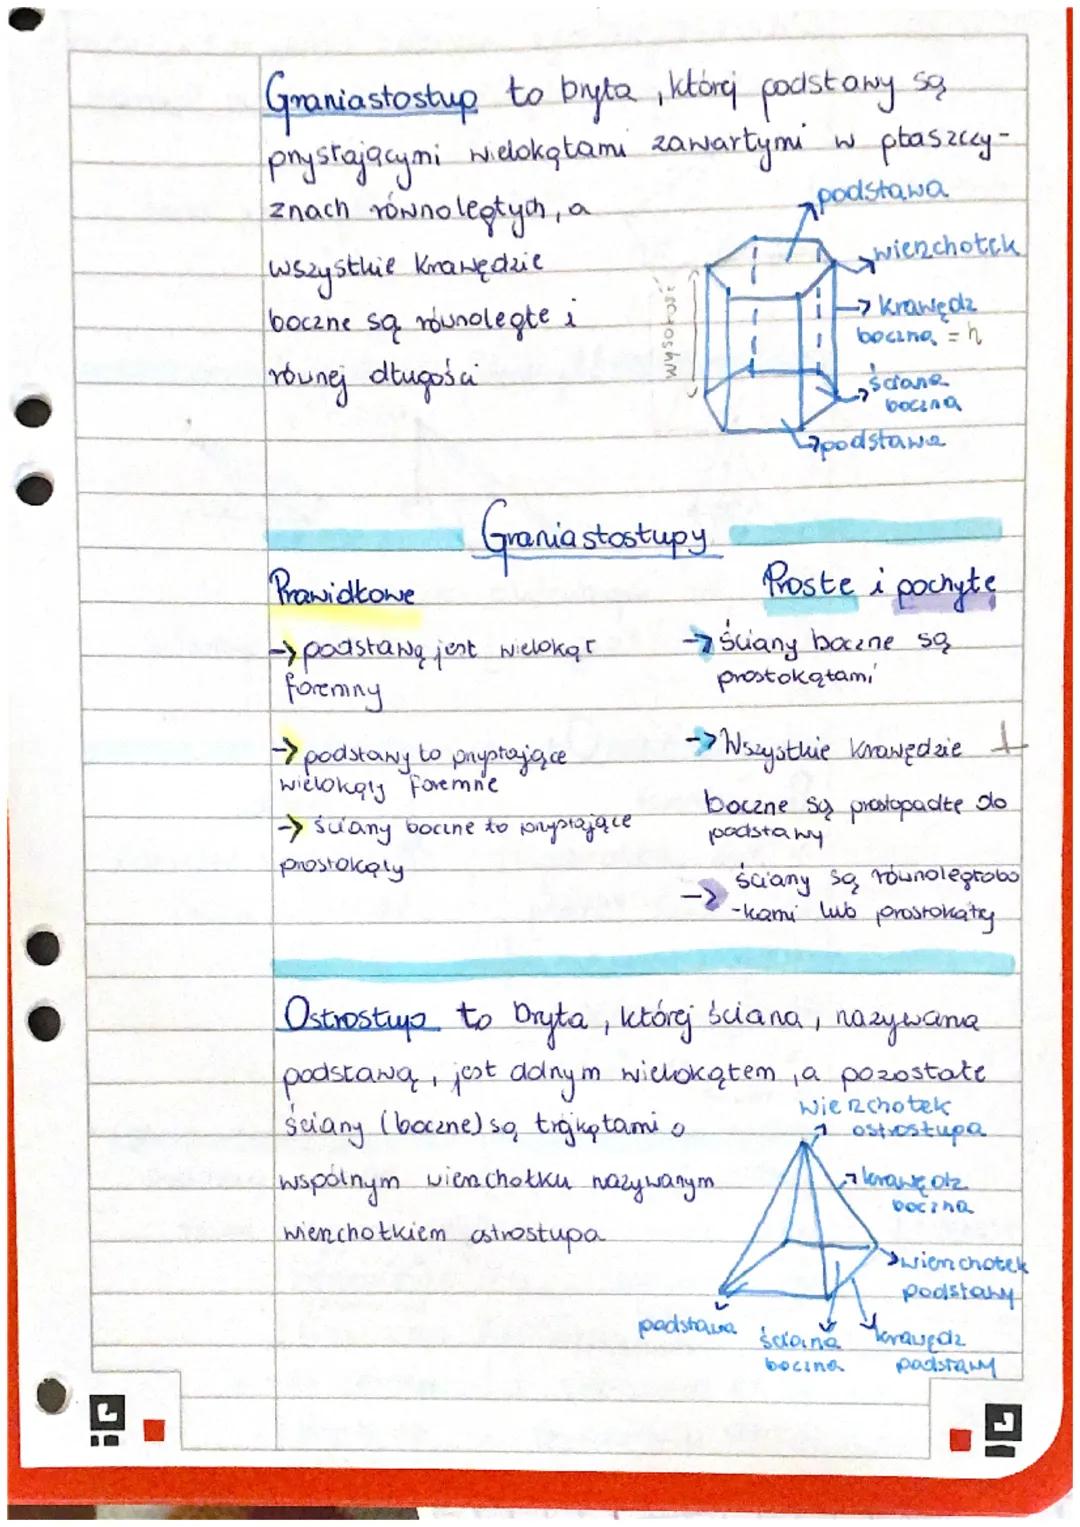 Graniastosłup to bryła, której podstawy są
przystającymi wielokątami zawartymi w płaszczy-
znach równoległych, a
wszystkie krawędzie
boczne są równoległe i
równej długości
podstawa
wierzchołek
krawędź
boczna = h
ściana
boczna
podstawa
wysokość
Graniastosłupy
Prawidłowe
→ podstawą jest wielokąt
foremny
→ podstawy to przystające
wielokąty foremne
→ ściany boczne to przystające
prostokąty
Proste i pochyłe
→ ściany boczne są
prostokątami
→ Wszystkie krawędzie ⊥
boczne są prostopadłe do
podstawy
→ ściany są równoległobo
-kami lub prostokąty
Ostrosłup to bryła, której ściana, nazywana
podstawą, jest dolnym wielokątem, a pozostałe
ściany (boczne) są trójkątami o
wspólnym wierzchołku nazywanym
wierzchołkiem ostrosłupa
wierzchołek
ostrosłupa
krawędź
boczna
wierzchołek
podstawy
podstawa
ściana
boczna
krawędź
podstawy